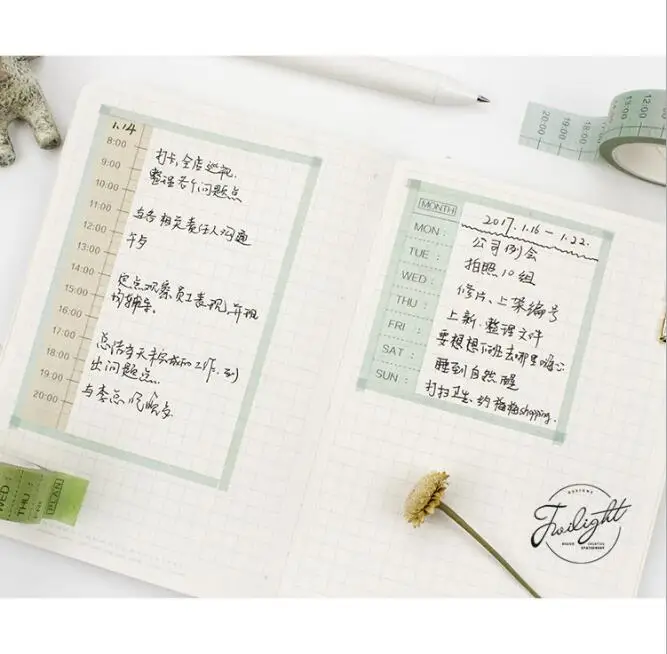 1.14
8:00
9:00
10:00
11:00
12:00
13:00
14:00
15:00
16:00
17:00
18:00
19:00
20:00
打卡,全店巡视,
整理若干问题点
与各相关责任人沟通
午歺
定点观察员工表现,并现
场辅导。
总结当天未完成的工作,列
出问题点.
与李总吃晚歺
MONTH
2017.1.16 — 1.22.
MON: 公司例会
TUE: 拍照10组
WED: 修片、上架编号
THU: 上新·整理文件
FRI: 要想想下班去哪里嗨心
SAT: 睡到自然醒
SUN: 打扫卫生、约梅梅shopping.
20:00
19:00
18:00
13:00
12:00
WED:
THU:
PLAN
DESIGNS
Twilight
BRAND CREATIVE
STATIONERY